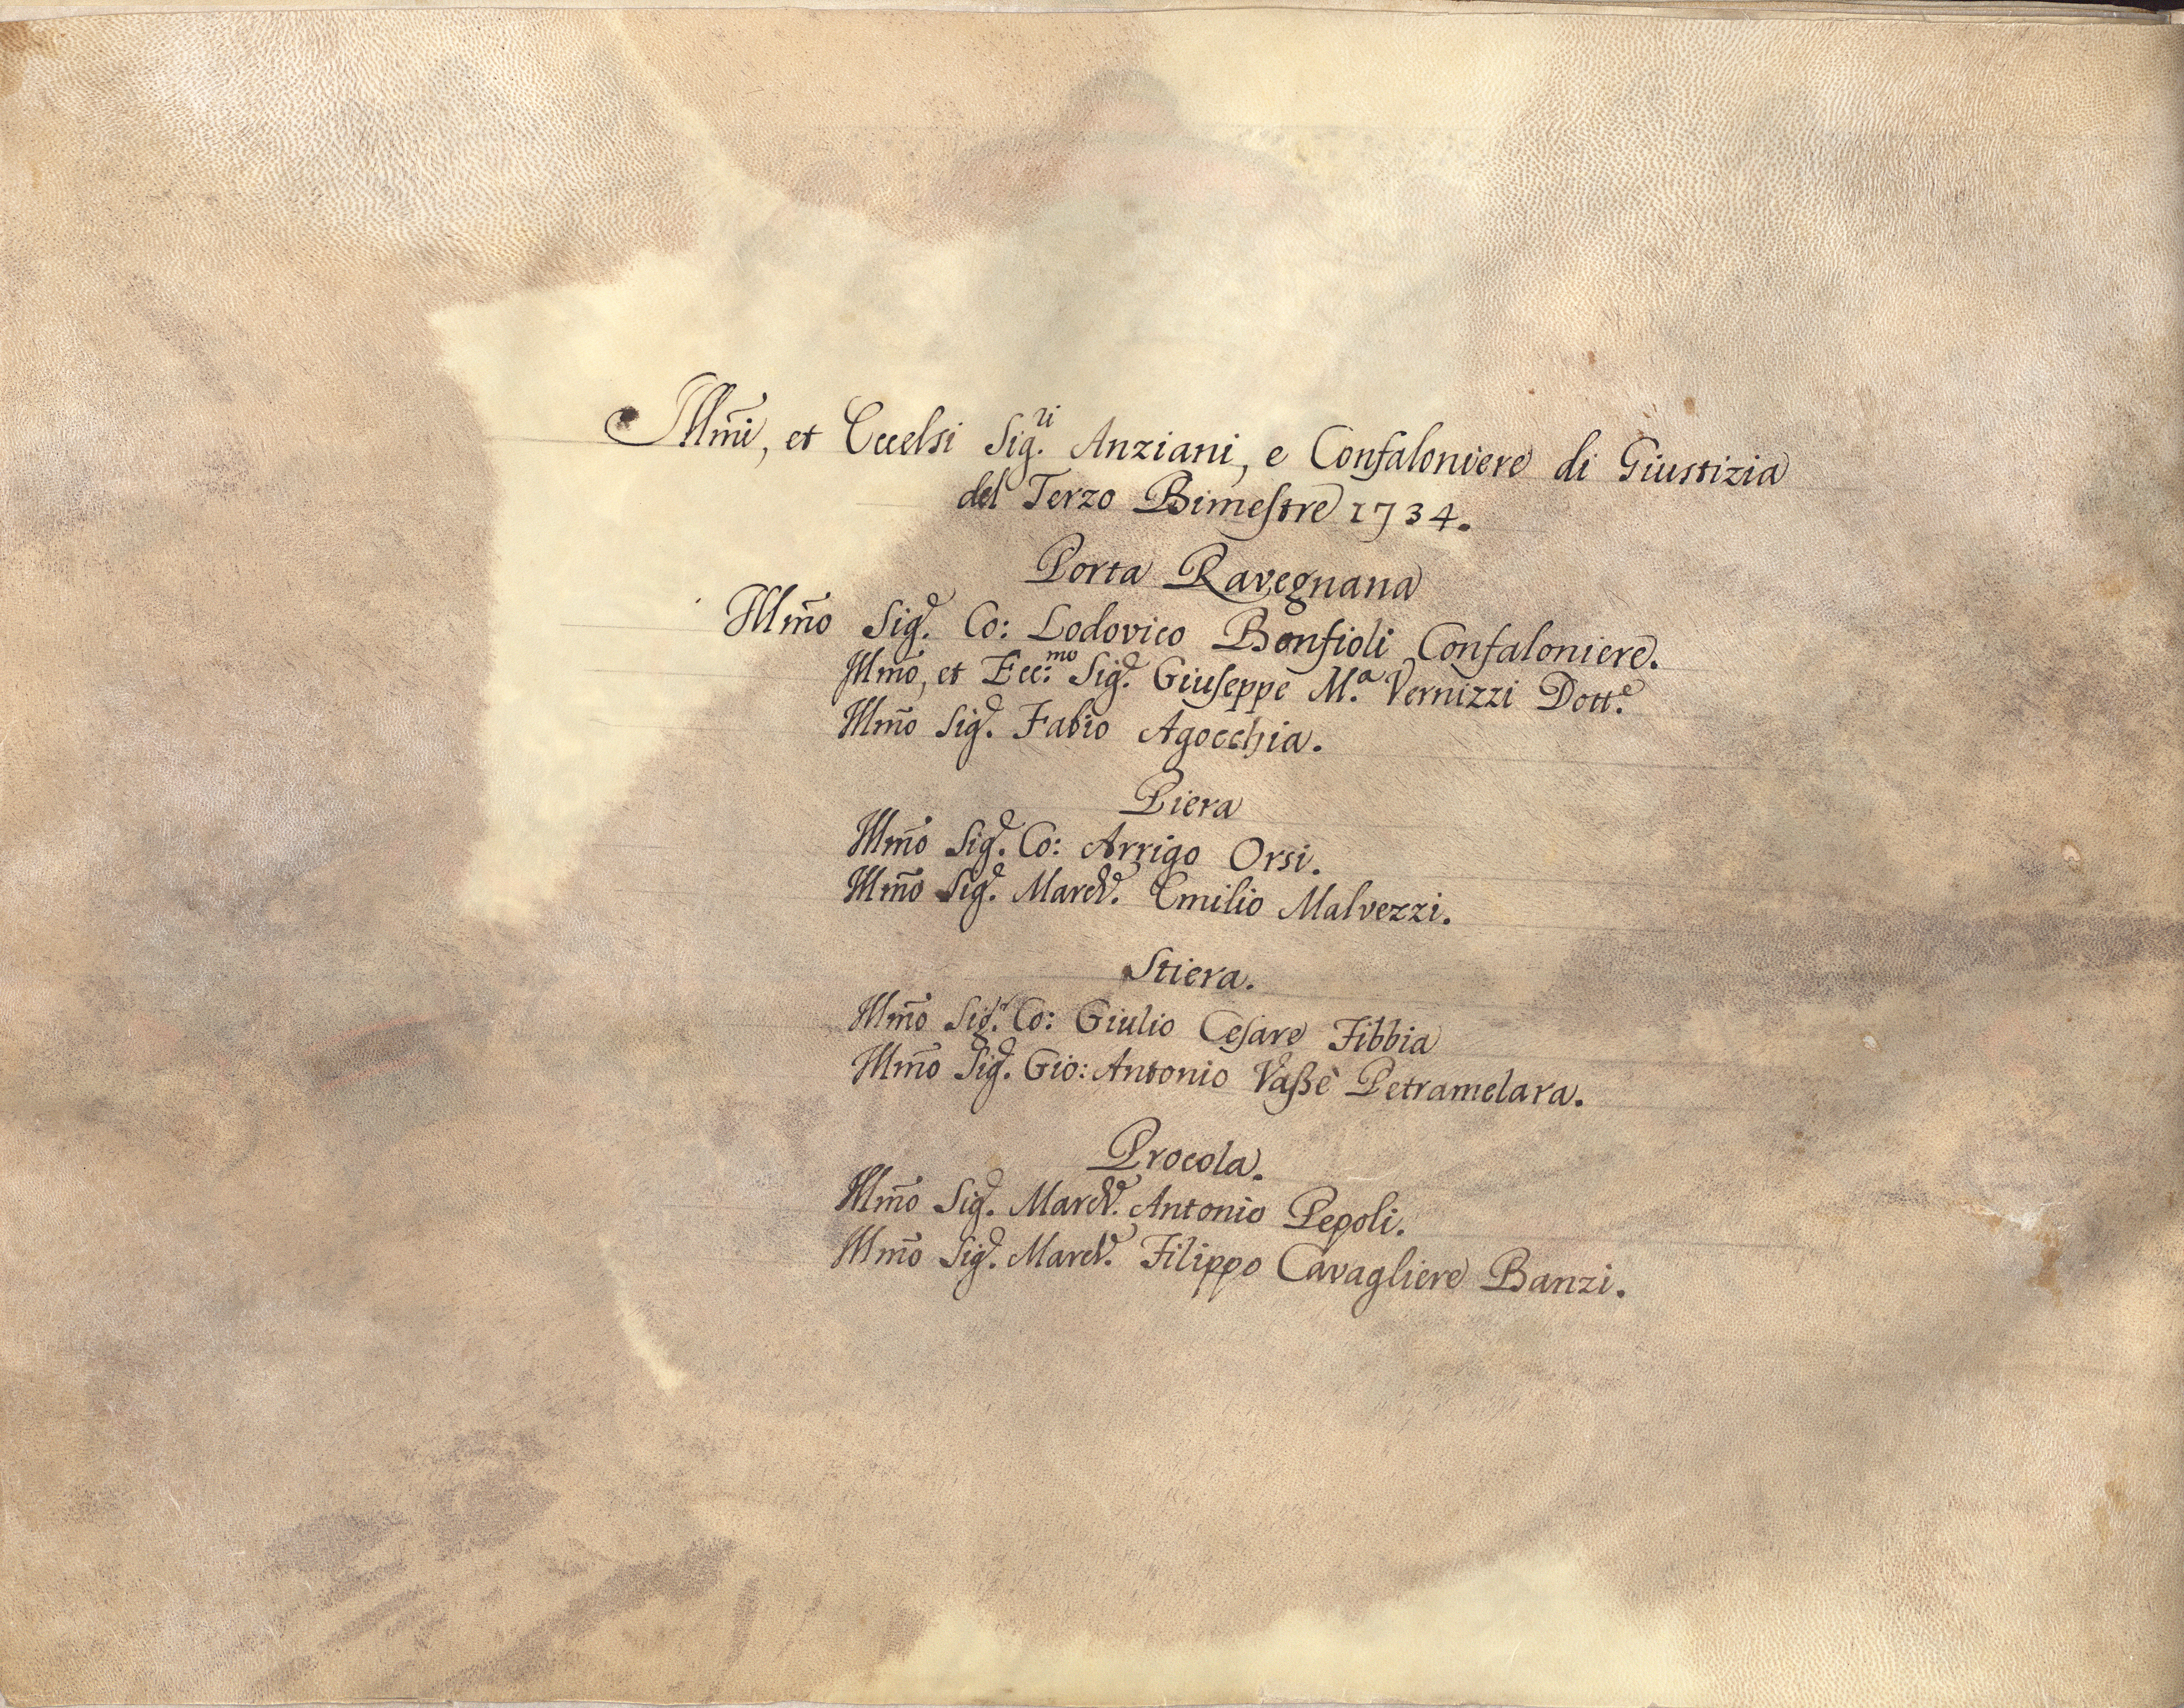 Illm̃i, et Eccelsi Sig.ri Anziani, e Confaloniere di Giustizia
del Terzo Bimestre 1734.
Porta Ravegnana
Illm̃o Sig.r Co: Lodovico Bonfioli Confaloniere.
Illm̃o, et Ecc:mo Sig.r Giuseppe M.a Vernizzi Dott.e
Illm̃o Sig.r Fabio Agocchia.
Piera
Illm̃o Sig.r Co: Arrigo Orsi.
Illm̃o Sig.r March.e Emilio Malvezzi.
Stiera.
Illm̃o Sig.r Co: Giulio Cesare Fibbia
Illm̃o Sig.r Gio: Antonio Vassè Petramelara.
Procola.
Illm̃o Sig.r March.e Antonio Pepoli.
Illm̃o Sig.r March.e Filippo Cavagliere Banzi.